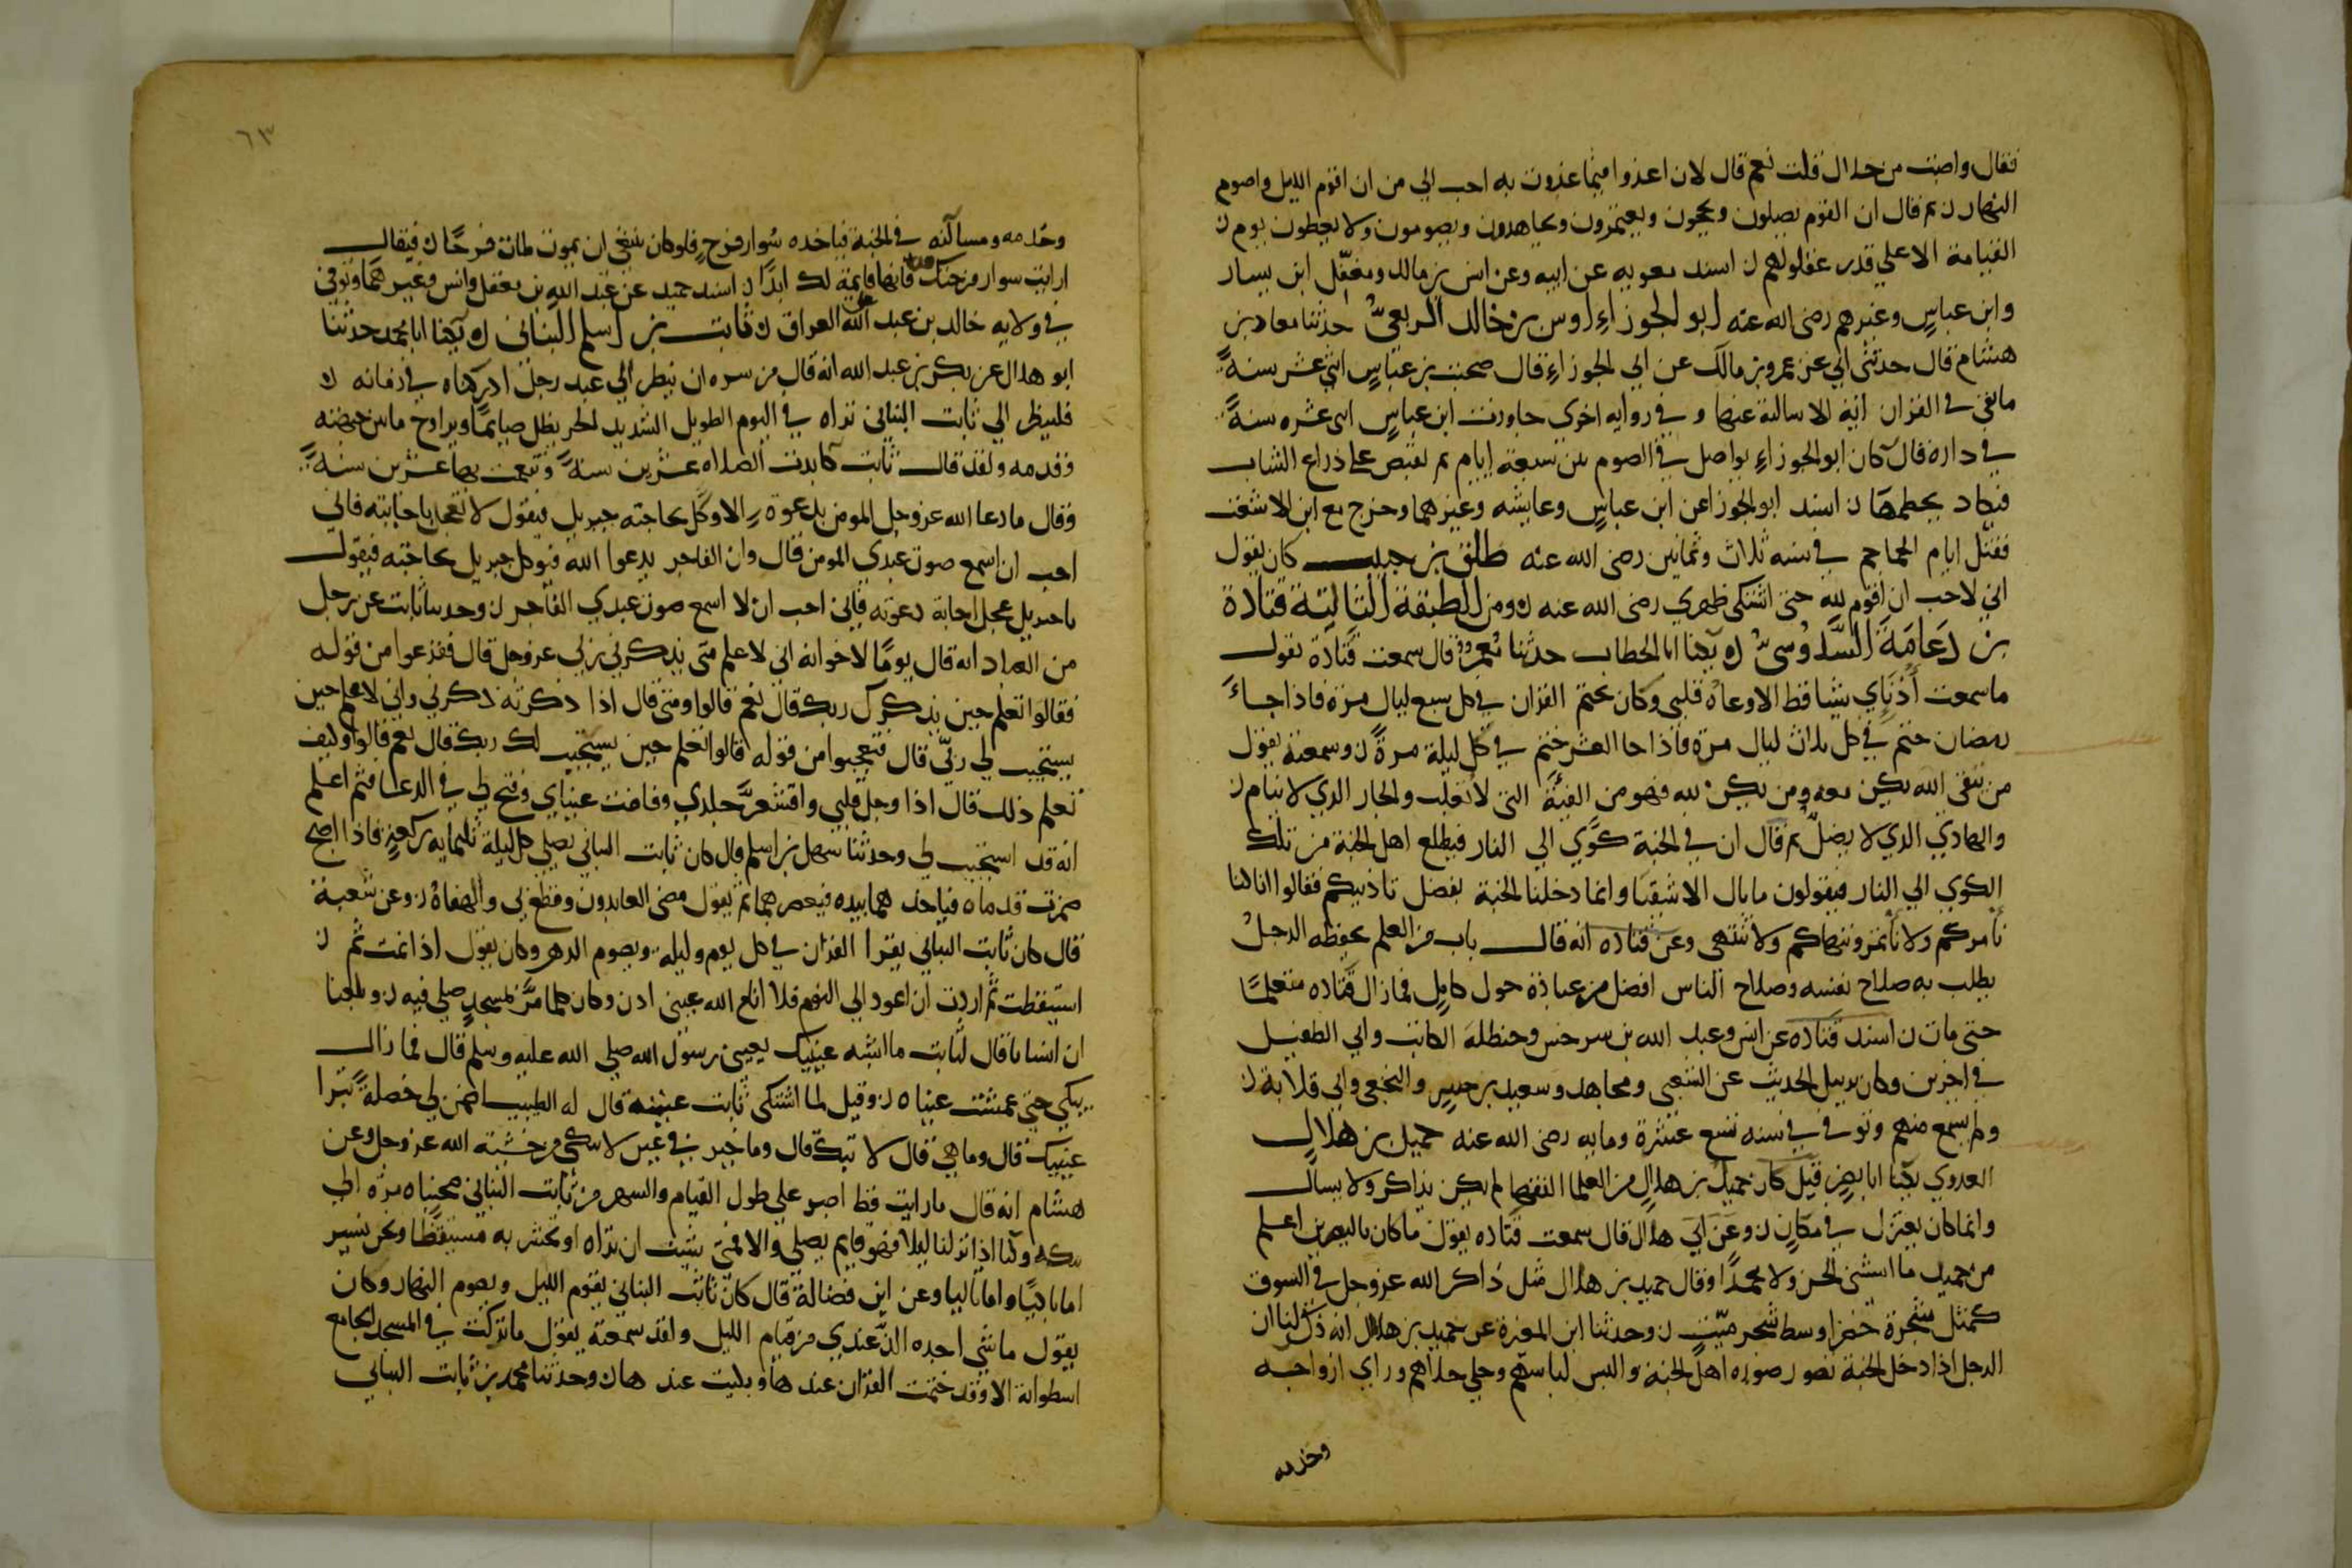 فقال واصبت من حلال قلت نعم قال لان اغدوا فيما غدوت به احب الي من ان اقوم الليل واصوم
النهار ن ثم قال ان القوم يصلون ويحجون ويعتمرون ويجاهدون ويصومون ولا يعطون يوم ن
القيامة الا علي قدر عقولهم ن اسند معويه عن ابيه وعن انس بن مالك ومعقل ابن يسار
وابن عباس وغيرهم رضي الله عنه ابو الجوزاء اوس بن خالد الربعي حدثنا معاد بن
هشام قال حدثني ابي عن عمرو بن مالك عن ابي الجوزاء قال صحبت بن عباس اثني عشر سنة
ما بقي في القران اية الا سالته عنها و في روايه اخري جاورت ابن عباس اثني عشره سنة
في داره قال كان ابو الجوزاء يواصل في الصوم بين سبعة ايام ثم يقبص علي ذراع الشاب
فيكاد يحطمها ن اسند ابو الجوزا عن ابن عباس وعايشه وغيرهما وخرج مع ابن الاشعث
فقتل ايام الجماجم في سنه ثلاث وثمانين رضي الله عنه طلق بن حبيب كان يقول
اني لاحب ان اقوم لله حتي اشتكي ظهري رضي الله عنه ن ومن الطبقة الثالثة قتادة
بن دعامة السدوسي ن يكنا ابا الخطاب حدثنا معمر قال سمعت قتادة يقول
ما سمعت أذناي شيا قط الا وعاه قلبي وكان يختم القران في كل سبع ليال مرة فاذا جاء
رمضان ختم في كل ثلاث ليال مرة فاذا جا العشر ختم في كل ليلة مرة ن وسمعته يقول
من يتقي الله يكن معه ومن يكن لله فهو من الفئة التي لا تغلب والجار الدي لا ينام ن
والهادي الدي لا يضل ثم قال ان في الجنة كوي الي النار فيطلع اهل الجنة من تلك
الكوي الي النار فيقولون ما بال الاشقيا وانما دخلنا الجنة بفضل تاديبكم فقالوا انا كنا
نأمركم ولا نأتمر وننهاكم ولا ننتهي وعن قتاده انه قال باب من العلم يحفظه الرجل
يطلب به صلاح نفسه وصلاح الناس افضل من عبادة حول كامل فما زال قتاده متعلما
حتي مات ن اسند قتاده عن انس وعبد الله بن سرجس وحنظلة الكاتب وابي الطفيل
في اخرين وكان يرسل الحديث عن الشعبي ومجاهد وسعيد بن جبير والنخعي وابي قلابة ن
ولم يسمع منهم وتوفي في سنه سبع عشرة ومايه رضي الله عنه حميد بن هلال
العدوي يكنا ابا نصر قيل كان حميد بن هلال من العلما الفقها لم يكن يذاكر ولا يسال
وانما كان يعتزل في مكان ن وعن ابي هلال قال سمعت قتاده يقول ما كان بالبصرين اعلم
من حميد ما استثني الحسن ولا محمدا وقال حميد بن هلال مثل ذاكر الله عز وجل في السوق
كمثل شجرة خضرا وسط شجر ميت ن وحدثنا ابن المغيرة عن حميد بن هلال انه ذكر لنا ان
الرجل اذا دخل الجنة تصور صوره اهل الجنة والبس لباسهم وحلي حلاهم وراي ازواجه
وخدمه
٦٣
وخدمه ومساكنه في الجنة فياخده سوار فرح فلو كان ينبغي ان يموت لمات فرحا ن فيقال
ارايت سوار فرحتك فانها قايمة لك ابدا ن اسند حميد عن عبد الله بن مغفل وانس وغيرهما وتوفي
في ولايه خالد بن عبد الله العراق ن ثابت بن اسلم البناني ن يكنا ابا محمد حدثنا
ابو هلال عن بكر بن عبد الله انه قال من سره ان ينظر الي عبد رجل ادركناه في زمانه لا
فلينظر الي ثابت البناني تراه في اليوم الطويل الشديد الحر يظل صايما ويراوح ما بين جبهته
وقدمه ولقد قال ثابت كابدت الصلاه عشرين سنة وتنعمت بها عشرين سنة
وقال ما دعا الله عز وجل المومن بدعوة الا وكل بحاجته جبريل فيقول لا تعجل باجابته فاني
احب ان اسمع صوت عبدي المومن قال وان الفاجر يدعوا الله فيوكل جبريل بحاجته فيقول
يا جبريل عجل اجابة دعوته فاني احب ان لا اسمع صوت عبدي الفاجر ن وحدثنا ثابت عن رجل
من العباد انه قال يوما لاخوانه اني لاعلم متي يذكرني ربي عز وجل قال ففزعوا من قوله
فقالوا تعلم حين يذكرك ربك قال نعم قالوا ومتي قال اذا ذكرته ذكرني واني لاعلم حين
يستجيب لي ربي قال فتعجبوا من قوله قالوا تعلم حين يستجيب لك ربك قال نعم قالوا وكيف
تعلم ذلك قال اذا وجل قلبي واقشعر جلدي وفاضت عيناي وفتح لي في الدعا فثم اعلم
انه قد استجيب لي وحدثنا سهل بن اسلم قال كان ثابت البناني يصلي كل ليلة ثلثمايه ركعة فاذا اصبح
ضمرت قدماه فياخذهما بيده فيعصرهما ثم يقول مضي العابدون وقطع بي والهفاه ن وعن شعبة
قال كان ثابت البناني يقرا القران في كل يوم وليله ويصوم الدهر وكان يقول اذا نمت ثم ن
استيقظت ثم اردت ان اعود الي النوم فلا انام الله عيني ادن وكان كلما مر بمسجد صلي فيه ن وبلغنا
ان انسا قال لثابت ما اشبه عينيك بعيني رسول الله صلي الله عليه وسلم قال فما زال
يبكي حتي عمشت عيناه ن وقيل لما اشتكي ثابت عينه قال له الطبيب اضمن لي خصلة تبرا
عينيك قال وما هي قال لا تبك قال وما خير في عين لا تبكي من خشية الله عز وجل وعن
هشام انه قال ما رايت قط اصبر علي طول القيام والسهر من ثابت البناني صحبناه مرة الي
مكه وكنا اذا نزلنا ليلا فهو قايم يصلي والا فمتي شيت ان تراه او تحس به مستيقظا ونحن نسير
اما باكيا واما تاليا وعن ابن فضالة قال كان ثابت البناني يقوم الليل ويصوم النهار وكان
يقول ما شي اجده الذ عندي من قيام الليل ولقد سمعته يقول ما تركت في المسجد الجامع
اسطوانة الا وقد ختمت القران عندها وبكيت عندها ن وحدثنا محمد بن ثابت البناني